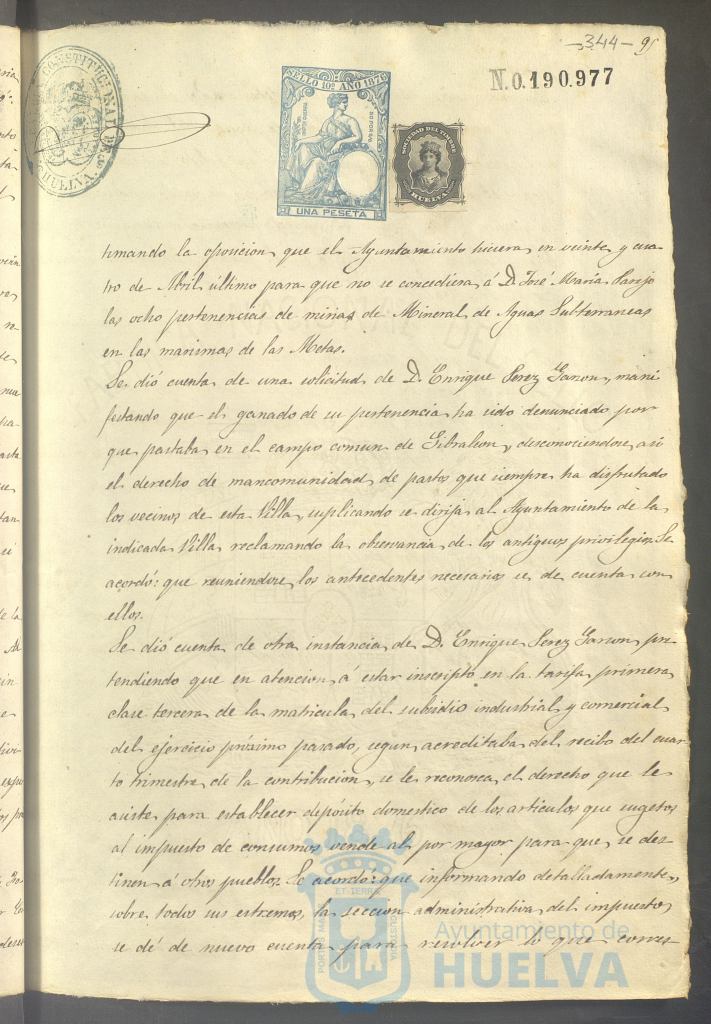 -344- 95
N.0.190.977
CONSTITUCIONAL DE
HUELVA.
SELLO 10º AÑO 1876
UNA PESETA
SOCIEDAD DEL TIMBRE
HUELVA
timando la oposicion que el Ayuntamiento hiciera en veinte y cua-
tro de Abril último para que no se concediera á D. José María Parejo
las ocho pertenencias de minas de Mineral de Aguas Subterraneas
en las marismas de las Metas.
Se dió cuenta de una solicitud de D. Enrique Perez Garzon, mani
festando que el ganado de su pertenencia ha sido denunciado por
que pastaba en el campo comun de Gibraleon, desconociendose asi
el derecho de mancomunidad de pastos que siempre ha disfrutado
los vecinos de esta Villa, suplicando se dirija al Ayuntamiento de la
indicada Villa reclamando la observancia de los antiguos privilegios. Se
acordó: que reuniendose los antecedentes necesarios se de cuenta con
ellos.
Se dió cuenta de otra instancia de D. Enrique Perez Garzon pre-
tendiendo que en atencion á estar inscripto en la tarifa primera
clase tercera de la matricula del subsidio industrial y comercial
del ejercicio próximo pasado, segun acreditaba del recibo del cuar
to trimestre de la contribucion, se le reconosca el derecho que le
asiste para establecer depósito domestico de los articulos que sugetos
al impuesto de consumos vende al por mayor para que se des-
tinen á otros pueblos. Se acordó: que informando detalladamente,
sobre todos sus estremos, la seccion administrativa del impuesto
se dé de nuevo cuenta para resolver lo que corres-
Ayuntamiento de
HUELVA